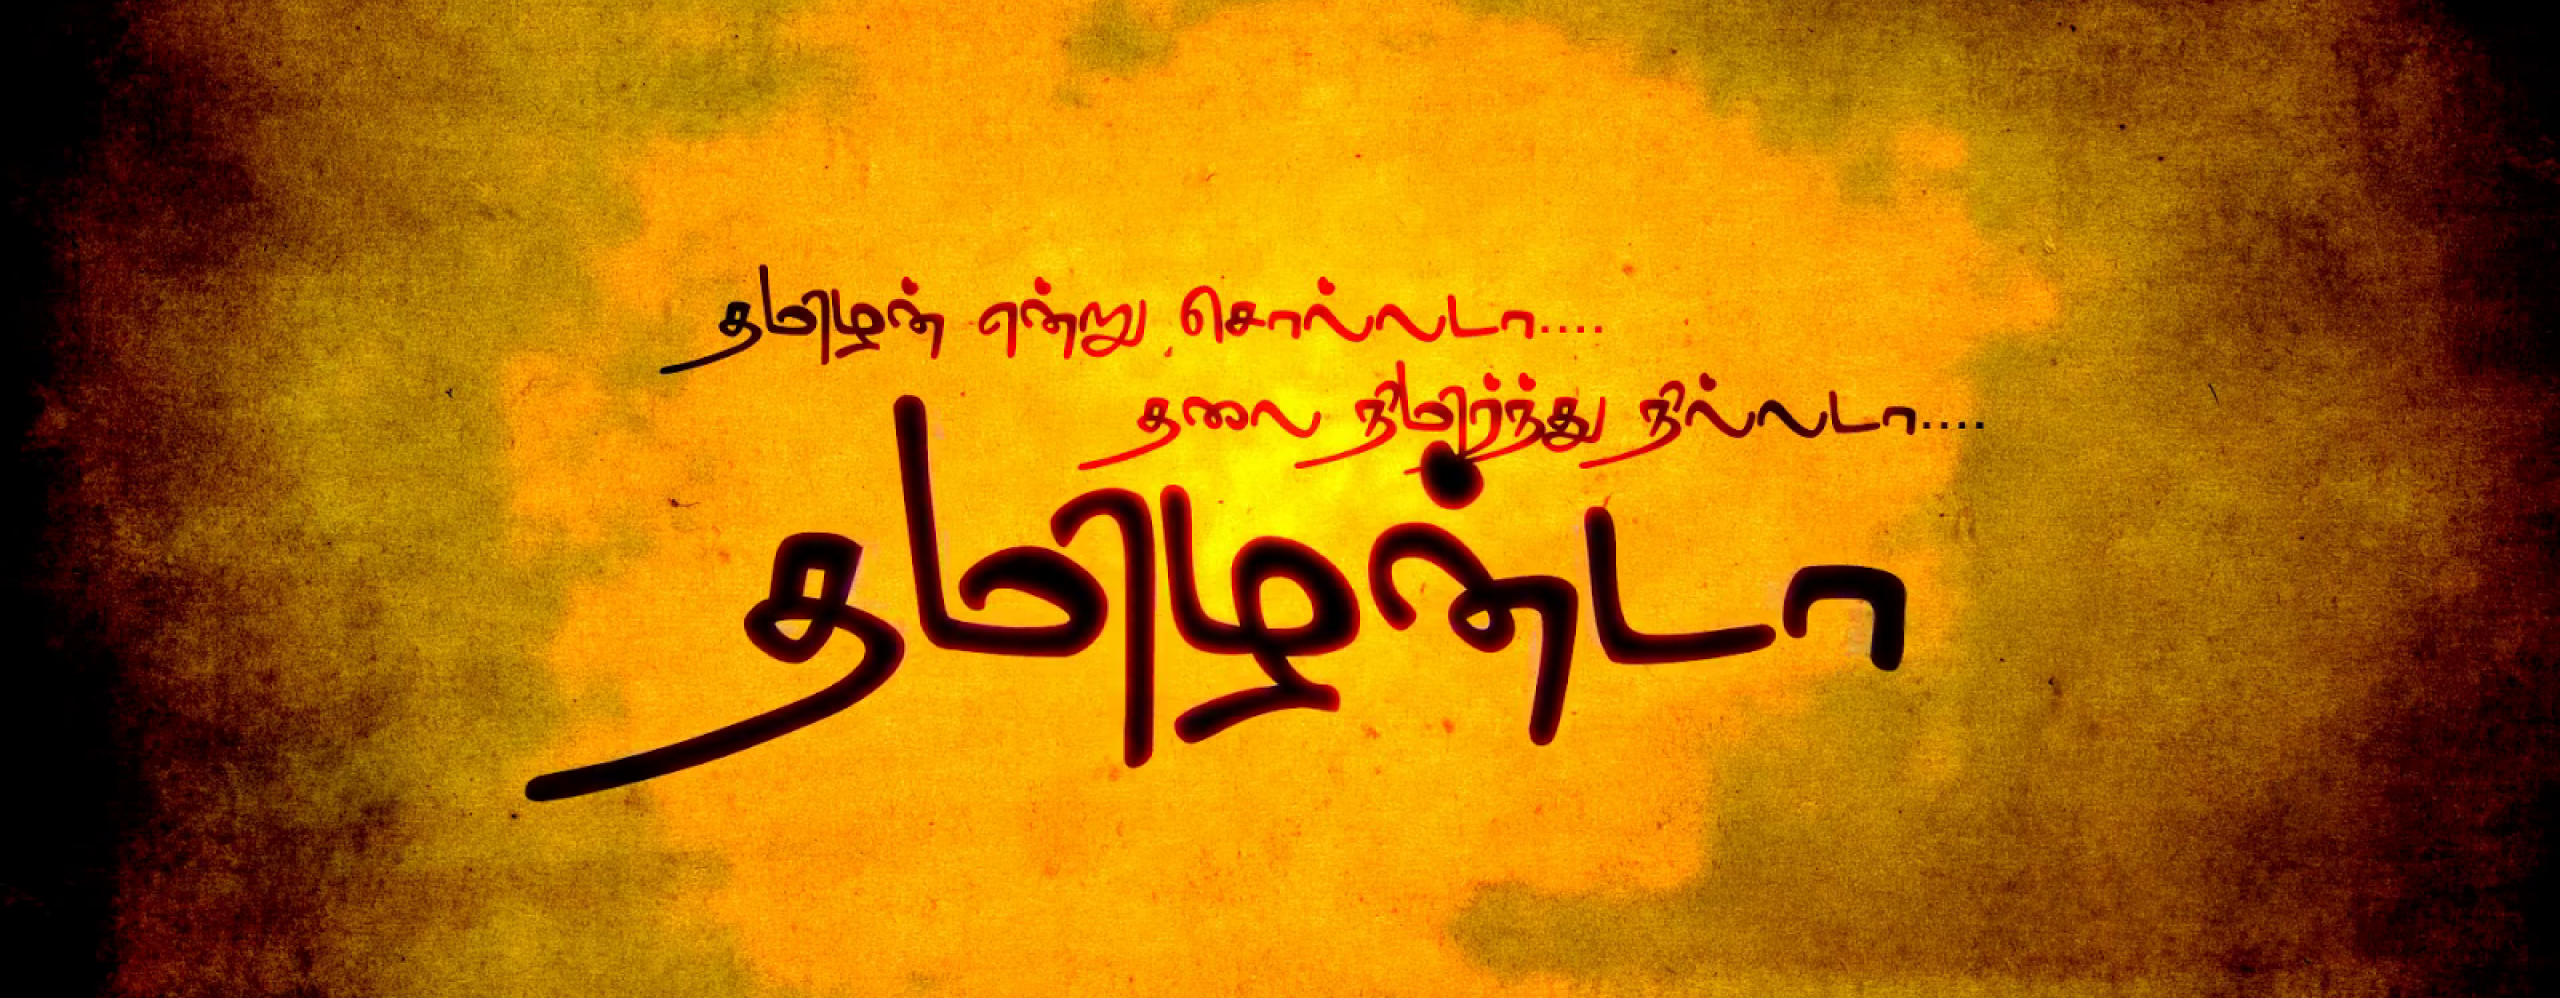 தமிழன் என்று சொல்லடா....
தலை நிமிர்ந்து நில்லடா....
தமிழன்டா